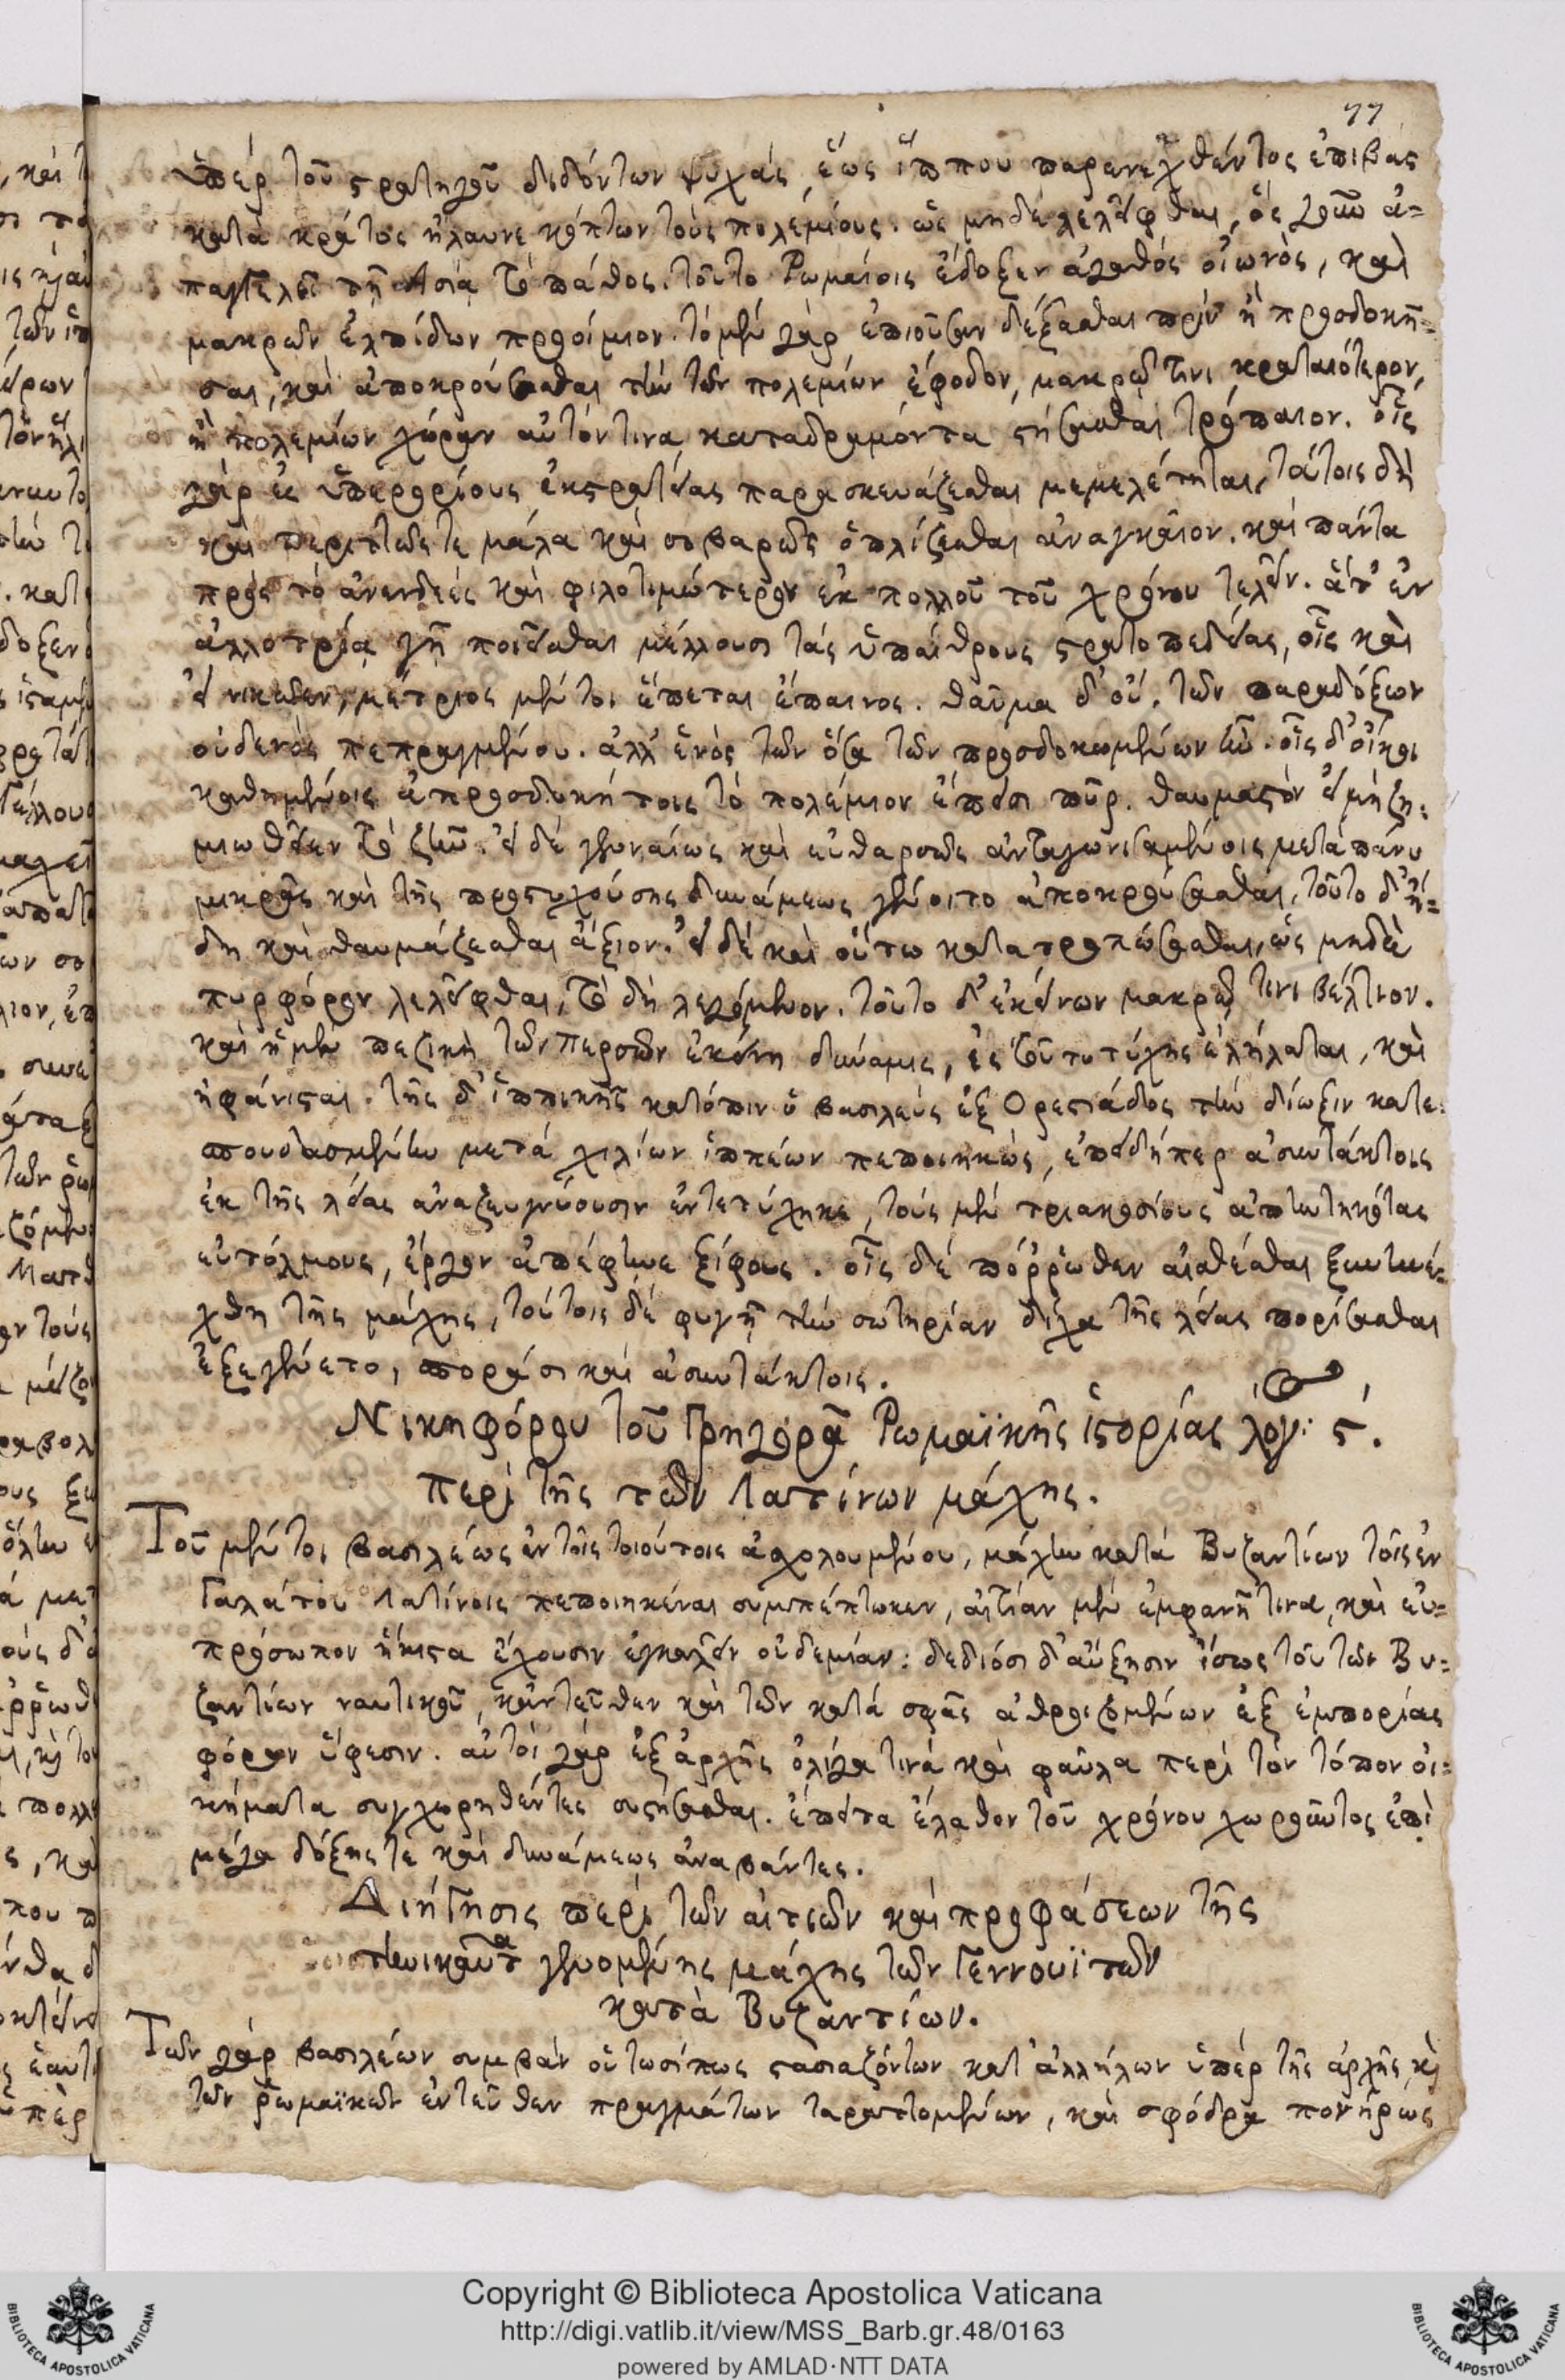 77
ὑπὲρ τοῦ στρατηγοῦ διδόντων ψυχὰς, ἕως ἵππου παρενεχθέντος ἐπιβὰς
κατὰ κράτος ἤλαυνε κόπτων τοὺς πολεμίους. ὡς μηδὲ λελεῖφθαι, ὃς γοῦν ἀ-
παγγελεῖ τῇ Ἀσίᾳ τὸ πάθος. τοῦτο Ῥωμαίοις ἔδοξεν ἀγαθὸς οἰωνὸς, καὶ
μακρῶν ἐλπίδων προοίμιον. τὸ μὲν γὰρ ἐπιοῦσαν δέξασθαι πρὶν ἢ προσδοκῆ-
σαι, καὶ ἀποκρούσασθαι τὴν τῶν πολεμίων ἔφοδον, μακρῷ τινι κραταιότερον,
ἢ πολεμίων χώραν αὐτόν τινα καταδραμόντα στήσασθαι τρόπαιον. οἷς
γὰρ ἐς ὑπερορίους ἐκστρατείας παρασκευάζεσθαι μεμελέτηται, τούτοις δὴ
καὶ περιττῶς τε μάλα καὶ σοβαρῶς ὁπλίζεσθαι ἀναγκαῖον. καὶ πάντα
πρὸς τὸ ἀνενδεὲς καὶ φιλοτιμώτερον ἐκ πολλοῦ τοῦ χρόνου τελεῖν. ἅτ' ἐν
ἀλλοτρίᾳ γῇ ποιεῖσθαι μέλλουσι τὰς ὑπαίθρους στρατοπεδείας, οἷς καὶ
εἰ νικῷεν, μέτριος μέντοι ἕπεται ἔπαινος. θαῦμα δ' οὔ. τῶν παραδόξων
οὐδενὸς πεπραγμένου. ἀλλ' ἑνὸς τῶν ὅσα τῶν προσδοκωμένων ἦν. οἷς δ' οἴκοι
καθημένοις ἀπροσδοκήτοις τὸ πολέμιον ἔπεισι πῦρ. θαυμαστὸν εἰ μὴ ζη-
μιωθεῖεν τὸ ζῆν. εἰ δὲ γενναίως καὶ εὐθαρσῶς ἀνταγωνισαμένοις μετὰ πάνυ
μικρᾶς καὶ τῆς προστυχούσης δυνάμεως γένοιτο ἀποκρούσασθαι, τοῦτο δ' ἤ-
δη καὶ θαυμάζεσθαι ἄξιον. εἰ δὲ καὶ οὕτω κατατροπώσασθαι, ὡς μηδὲ
πυρφόρον λελεῖφθαι, τὸ δὴ λεγόμενον. τοῦτο δ' ἐκείνων μακρῷ τινι βέλτιον.
καὶ ἡ μὲν πεζικὴ τῶν Περσῶν ἐκείνη δύναμις, ἐς τοῦτο τύχης ἐλήλαται, καὶ
ἠφάνισται. τῆς δ' ἱππικῆς κατόπιν ὁ βασιλεὺς ἐξ Ὀρεστιάδος τὴν δίωξιν κατε-
σπουδασμένην μετὰ χιλίων ἱππέων πεποιηκὼς, ἐπειδήπερ ἀσυντάκτοις
ἐκ τῆς λείας ἀναζευγνύουσιν ἐντετύχηκε, τοὺς μὲν τριακοσίους ἀπηντηκότας
εὐτόλμους, ἔργον ἀπέφηνε ξίφους. οἷς δὲ πόῤῥωθεν αἰσθέσθαι ξυνηνέ-
χθη τῆς μάχης, τούτοις δὲ φυγῇ τὴν σωτηρίαν δίχα τῆς λείας πορίσασθαι
ἐξεγένετο, σποράσι καὶ ἀσυντάκτοις.
Νικηφόρου τοῦ Γρηγορᾶ Ῥωμαϊκῆς ἱστορίας λόγ: ϛ.
περὶ τῆς τῶν Λατίνων μάχης.
Τοῦ μέντοι βασιλέως ἐν τοῖς τοιούτοις ἀσχολουμένου, μάχην κατὰ Βυζαντίων τοῖς ἐν
Γαλάτου Λατίνοις πεποιηκέναι συμπέπτωκεν, αἰτίαν μὲν ἐμφανῆ τινα, καὶ εὐ-
πρόσωπον ἥκιστα ἔχουσιν ἐγκαλεῖν οὐδεμίαν: δεδιόσι δ' αὔξησιν ἴσως τοῦ τῶν Βυ-
ζαντίων ναυτικοῦ, κἀντεῦθεν καὶ τῶν κατὰ σφᾶς ἀθροιζομένων ἐξ ἐμπορίας
φόρων ὕφεσιν. αὐτοὶ γὰρ ἐξ ἀρχῆς ὀλίγα τινὰ καὶ φαῦλα περὶ τὸν τόπον οἰ-
κήματα συγχωρηθέντες συστήσασθαι. ἔπειτα ἔλαθον τοῦ χρόνου χωροῦντος ἐπὶ
μέγα δόξης τε καὶ δυνάμεως ἀναβάντες.
Διήγησις περὶ τῶν αἰτιῶν καὶ προφάσεων τῆς
τηνικαῦτα γενομένης μάχης τῶν Γεννουϊτῶν
κατὰ Βυζαντίων.
Τῶν γὰρ βασιλέων συμβὰν οὑτωσίπως στασιαζόντων κατ' ἀλλήλων ὑπὲρ τῆς ἀρχῆς, καὶ
τῶν ῥωμαϊκῶν ἐντεῦθεν πραγμάτων ταραττομένων, καὶ σφόδρα πονήρως
Copyright © Biblioteca Apostolica Vaticana
http://digi.vatlib.it/view/MSS_Barb.gr.48/0163
powered by AMLAD·NTT DATA
BIBLIOTECA APOSTOLICA VATICANA
BIBLIOTECA APOSTOLICA VATICANA